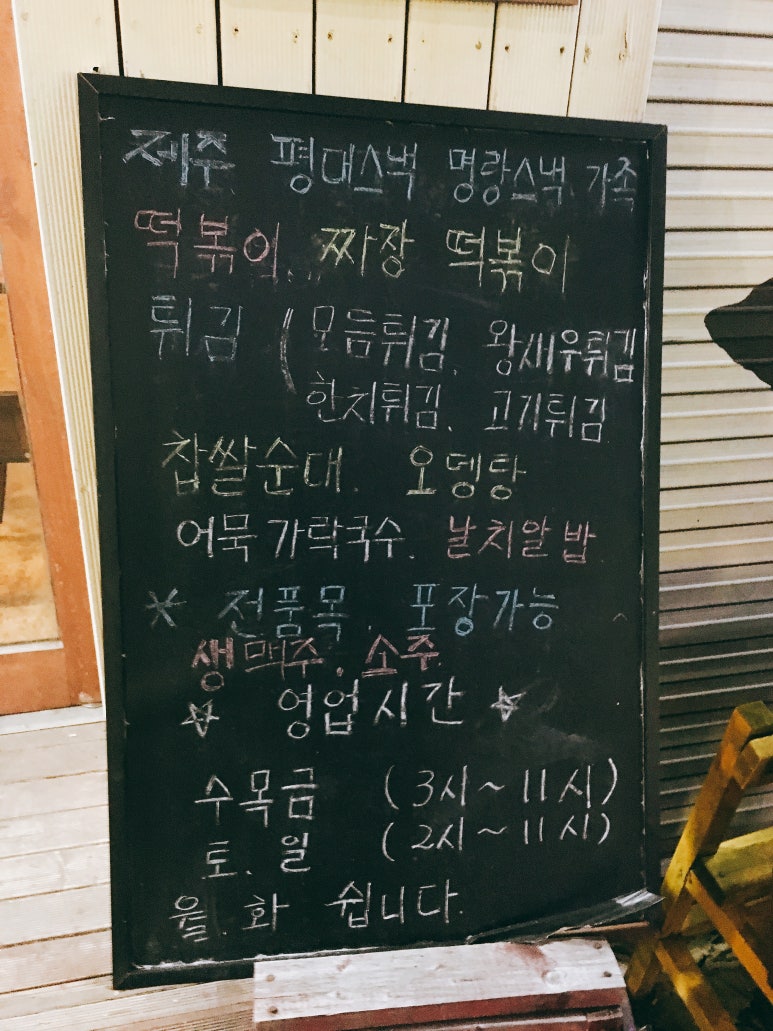 제주. 평대스낵 명랑스낵. 가족
떡볶이. 짜장 떡볶이
튀김 ( 모듬튀김. 왕새우튀김
한치튀김. 고기튀김
찹쌀순대. 오뎅탕
어묵 가락국수. 날치알밥
* 전품목. 포장가능
생맥주. 소주
☆ 영업시간 ☆
수목금 (3시~11시)
토.일 (2시~11시)
월.화 쉽니다.